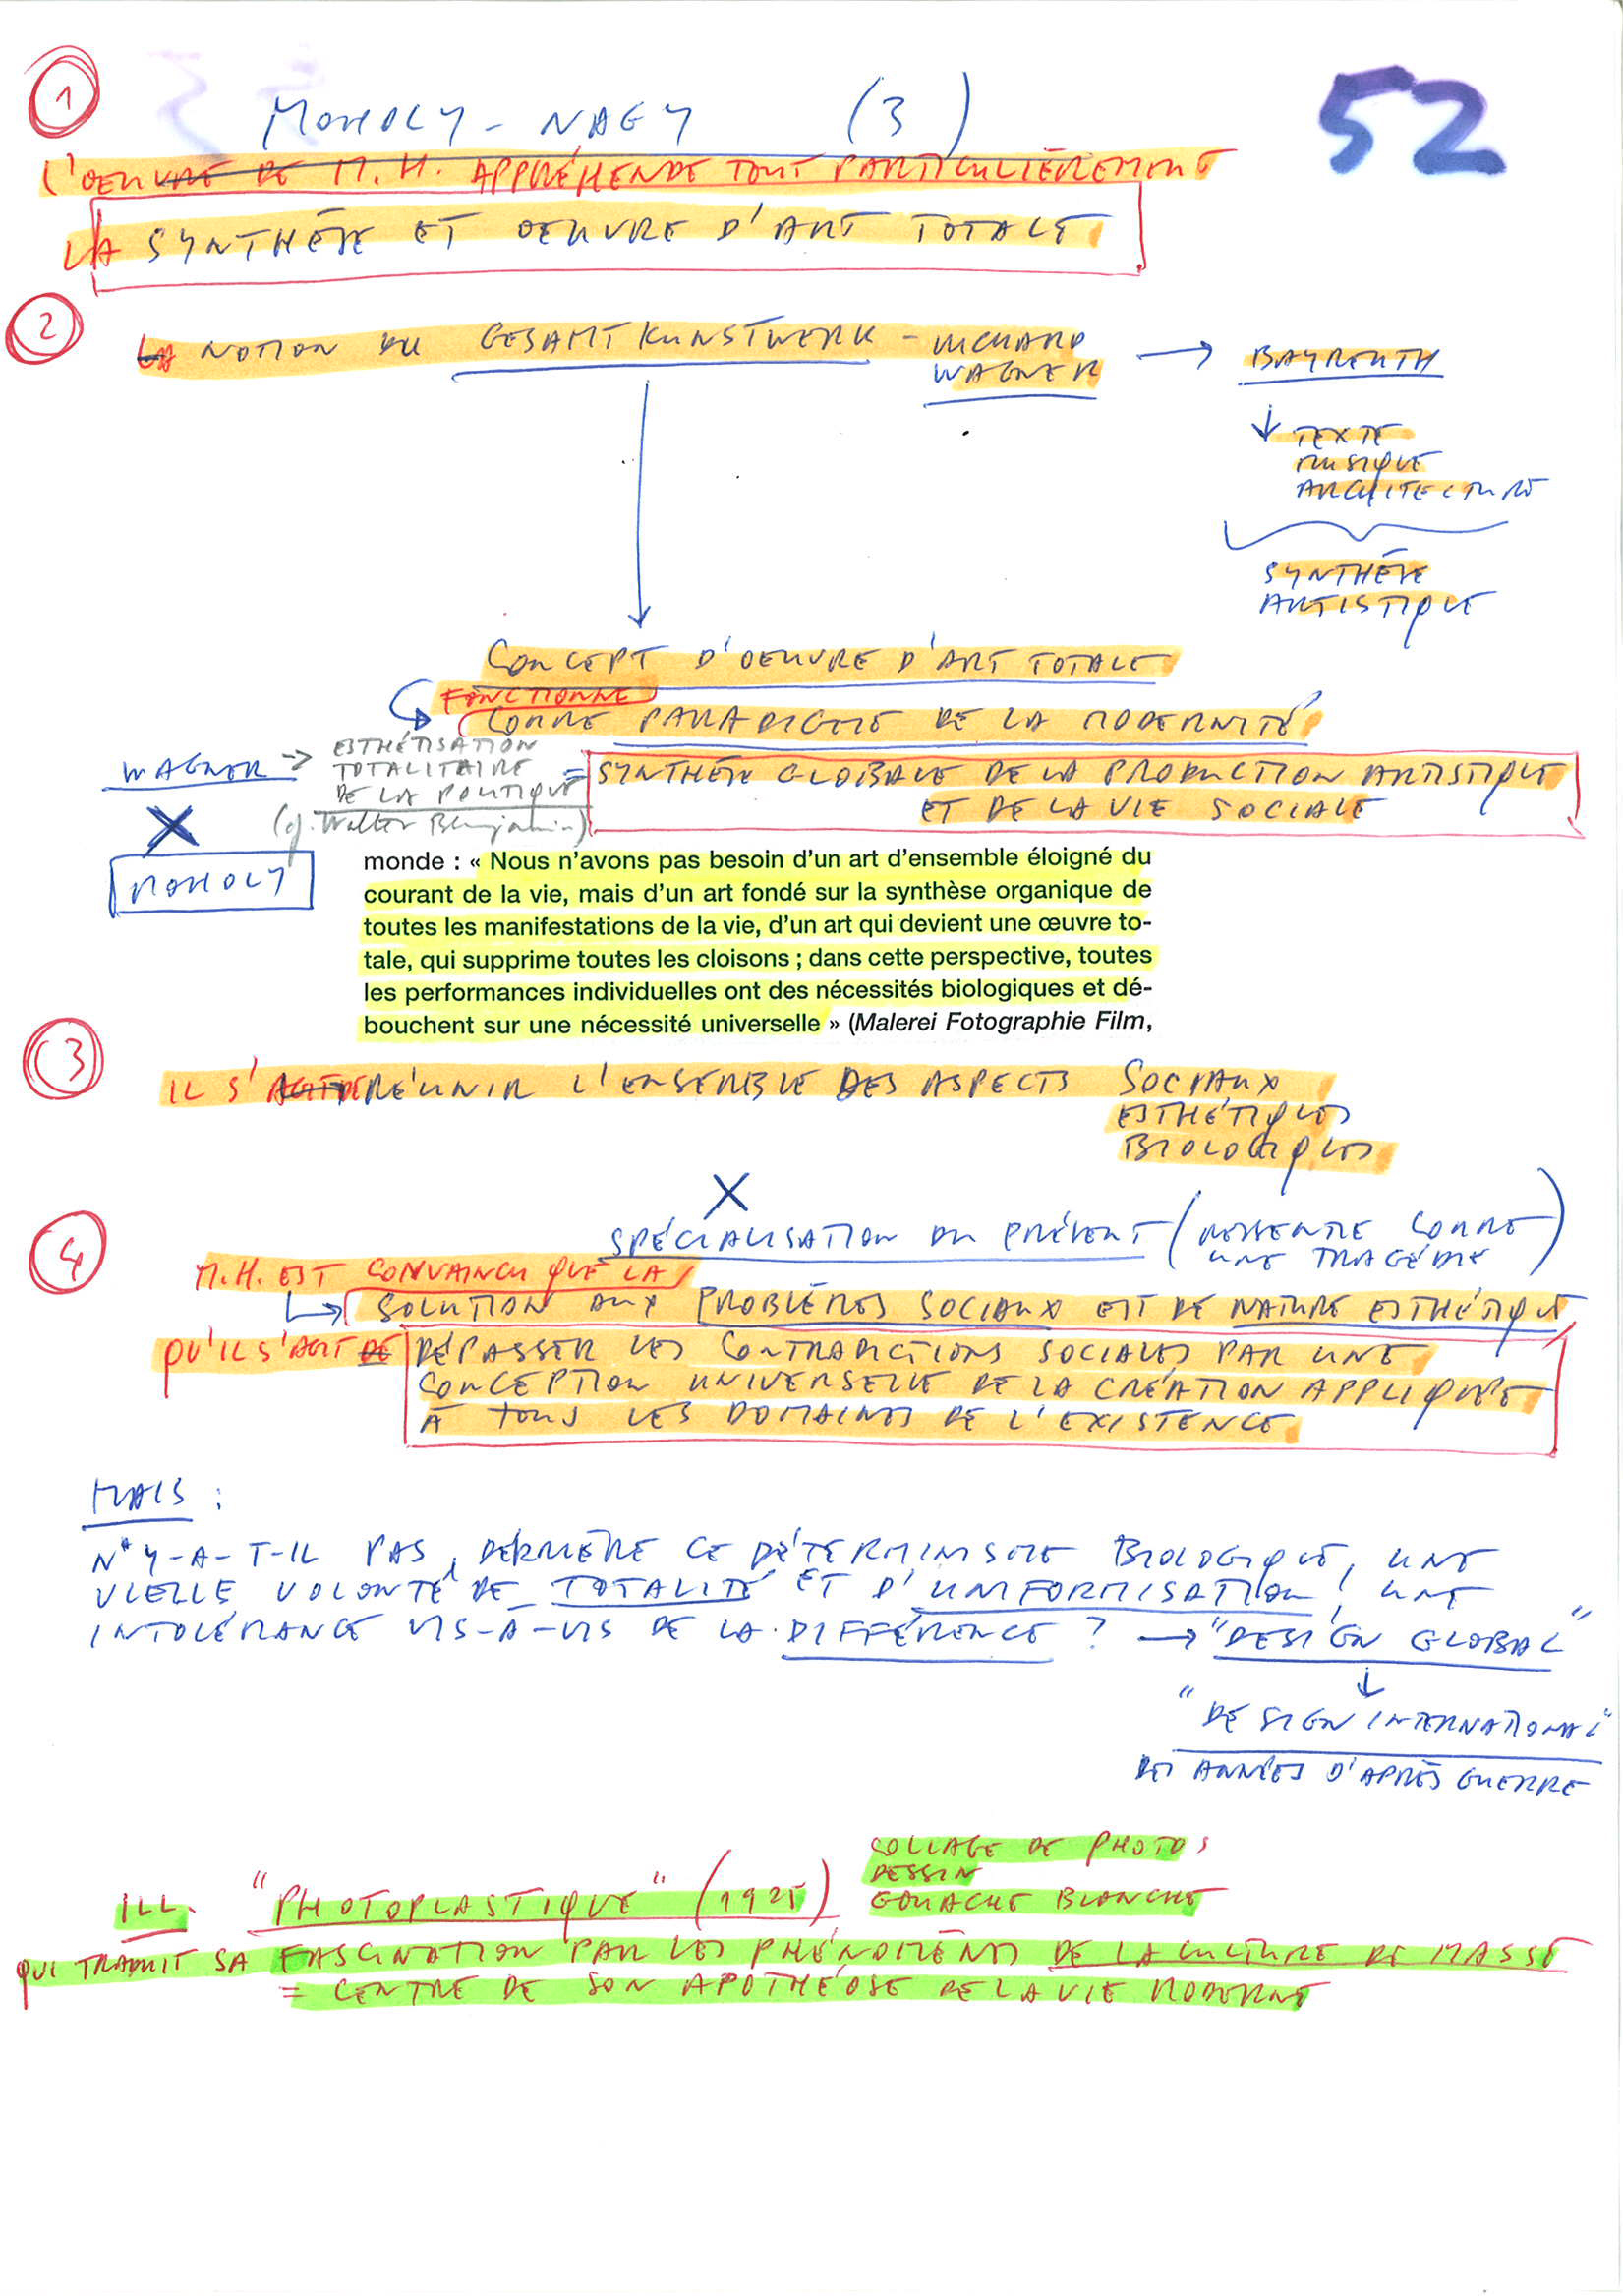 1
MOHOLY-NAGY (3)
52
L'OEUVRE DE M. H. APPRÉHENDE TOUT PARTICULIÈREMENT
LA SYNTHÈSE ET OEUVRE D'ART TOTALE
2
LA NOTION DU GESAMTKUNSTWERK - RICHARD
WAGNER → BAYREUTH
↓ TEXTE
MUSIQUE
ARCHITECTURE
SYNTHÈSE
ARTISTIQUE
CONCEPT D'OEUVRE D'ART TOTALE
FONCTIONNE
COMME PARADIGME DE LA MODERNITÉ
WAGNER → ESTHÉTISATION
TOTALITAIRE
DE LA POLITIQUE
(cf. Walter Benjamin)
= SYNTHÈSE GLOBALE DE LA PRODUCTION ARTISTIQUE
ET DE LA VIE SOCIALE
X
MOHOLY
monde : « Nous n'avons pas besoin d'un art d'ensemble éloigné du
courant de la vie, mais d'un art fondé sur la synthèse organique de
toutes les manifestations de la vie, d'un art qui devient une œuvre to-
tale, qui supprime toutes les cloisons ; dans cette perspective, toutes
les performances individuelles ont des nécessités biologiques et dé-
bouchent sur une nécessité universelle » (Malerei Fotographie Film,
3
IL S'AGIT DE RÉUNIR L'ENSEMBLE DES ASPECTS SOCIAUX
ESTHÉTIQUES
BIOLOGIQUES
X
4
SPÉCIALISATION DU PRÉSENT (RESSENTIE COMME
UNE TRAGÉDIE)
M.H. EST CONVAINCU QUE LA
SOLUTION AUX PROBLÈMES SOCIAUX EST DE NATURE ESTHÉTIQUE
QU'IL S'AGIT DE DÉPASSER LES CONTRADICTIONS SOCIALES PAR UNE
CONCEPTION UNIVERSELLE DE LA CRÉATION APPLIQUÉE
À TOUS LES DOMAINES DE L'EXISTENCE
MAIS :
N'Y-A-T-IL PAS, DERRIÈRE CE DÉTERMINISME BIOLOGIQUE, UNE
VIELLE VOLONTÉ DE TOTALITÉ ET D'UNIFORMISATION, UNE
INTOLÉRANCE VIS-À-VIS DE LA DIFFÉRENCE ? → "DESIGN GLOBAL"
↓
"DESIGN INTERNATIONAL"
DES ANNÉES D'APRÈS GUERRE
COLLAGE DE PHOTOS
DESSIN
ILL. "PHOTOPLASTIQUE" (1925) GOUACHE BLANCHE
QUI TRADUIT SA FASCINATION PAR LES PHÉNOMÈNES DE LA CULTURE DE MASSE
= CENTRE DE SON APOTHÉOSE DE LA VIE MODERNE